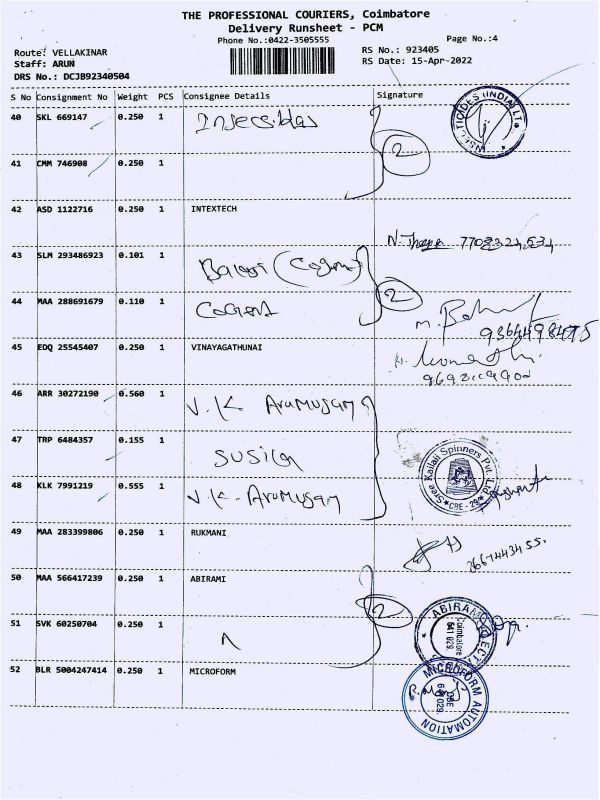 THE PROFESSIONAL COURIERS, Coimbatore
Delivery Runsheet - PCM
Phone No.:0422-3505555
Page No.:4
Route: VELLAKINAR
RS No.: 923405
Staff: ARUN
RS Date: 15-Apr-2022
DRS No.: DCJB92340504
S No Consignment No Weight PCS Consignee Details Signature
40 SKL 669147 0.250 1
2
41 CMM 746908 0.250 1
42 ASD 1122716 0.250 1 INTEXTECH
43 SLM 293486923 0.101 1
2
44 MAA 288691679 0.110 1
9364498475
45 EDQ 25545407 0.250 1 VINAYAGATHUNAI
46 ARR 30272190 0.560 1 V.K Arumugam
47 TRP 6484357 0.155 1 Susila
Sree Kailati Spinners Pvt. Ltd. CBE - 29
48 KLK 7991219 0.555 1 V.K. Arumugam
49 MAA 283399806 0.250 1 RUKMANI
50 MAA 566417239 0.250 1 ABIRAMI
2
51 SVK 60250704 0.250 1
Coimbatore 641 029
52 BLR 5004247414 0.250 1 MICROFORM
MICROFORM AUTOMATION